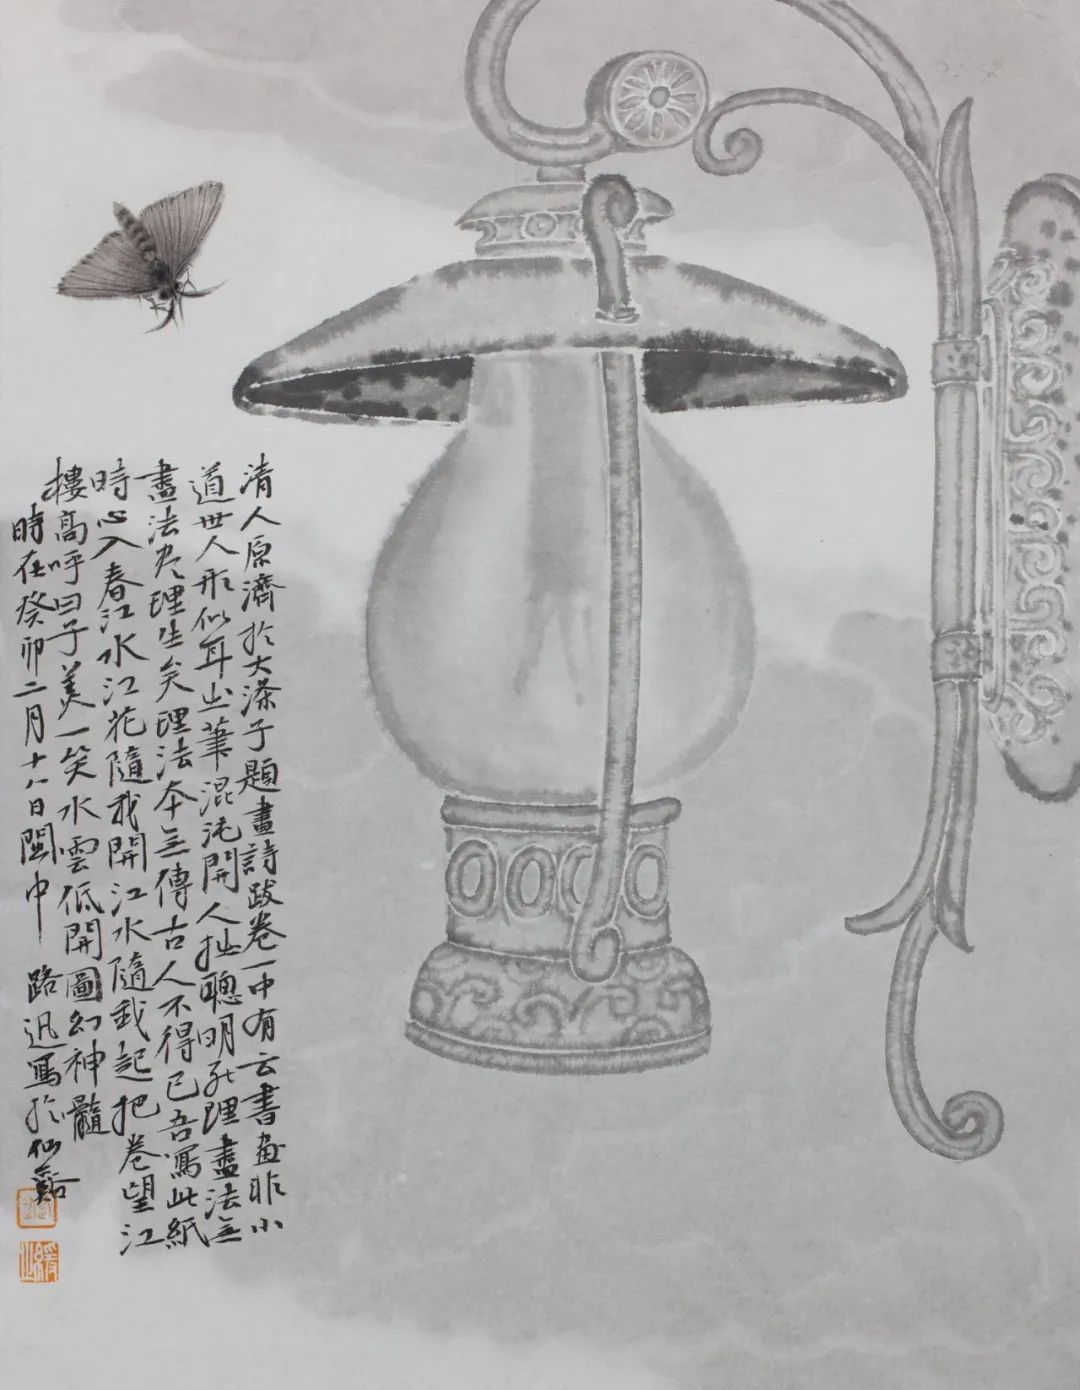 清人原濟於大滌子題畫詩跋卷一中有云書画非小
道世人形似耳出筆混沌開人拙聰明死理盡法無
盡法尽理生矣理法本無傳古人不得已吾寫此紙
時心入春江水江花隨我開江水隨我起把卷望江
樓高呼曰子美一笑水雲低開圖幻神髓
時在癸卯二月十八日閩中 路迅寫於仙谿